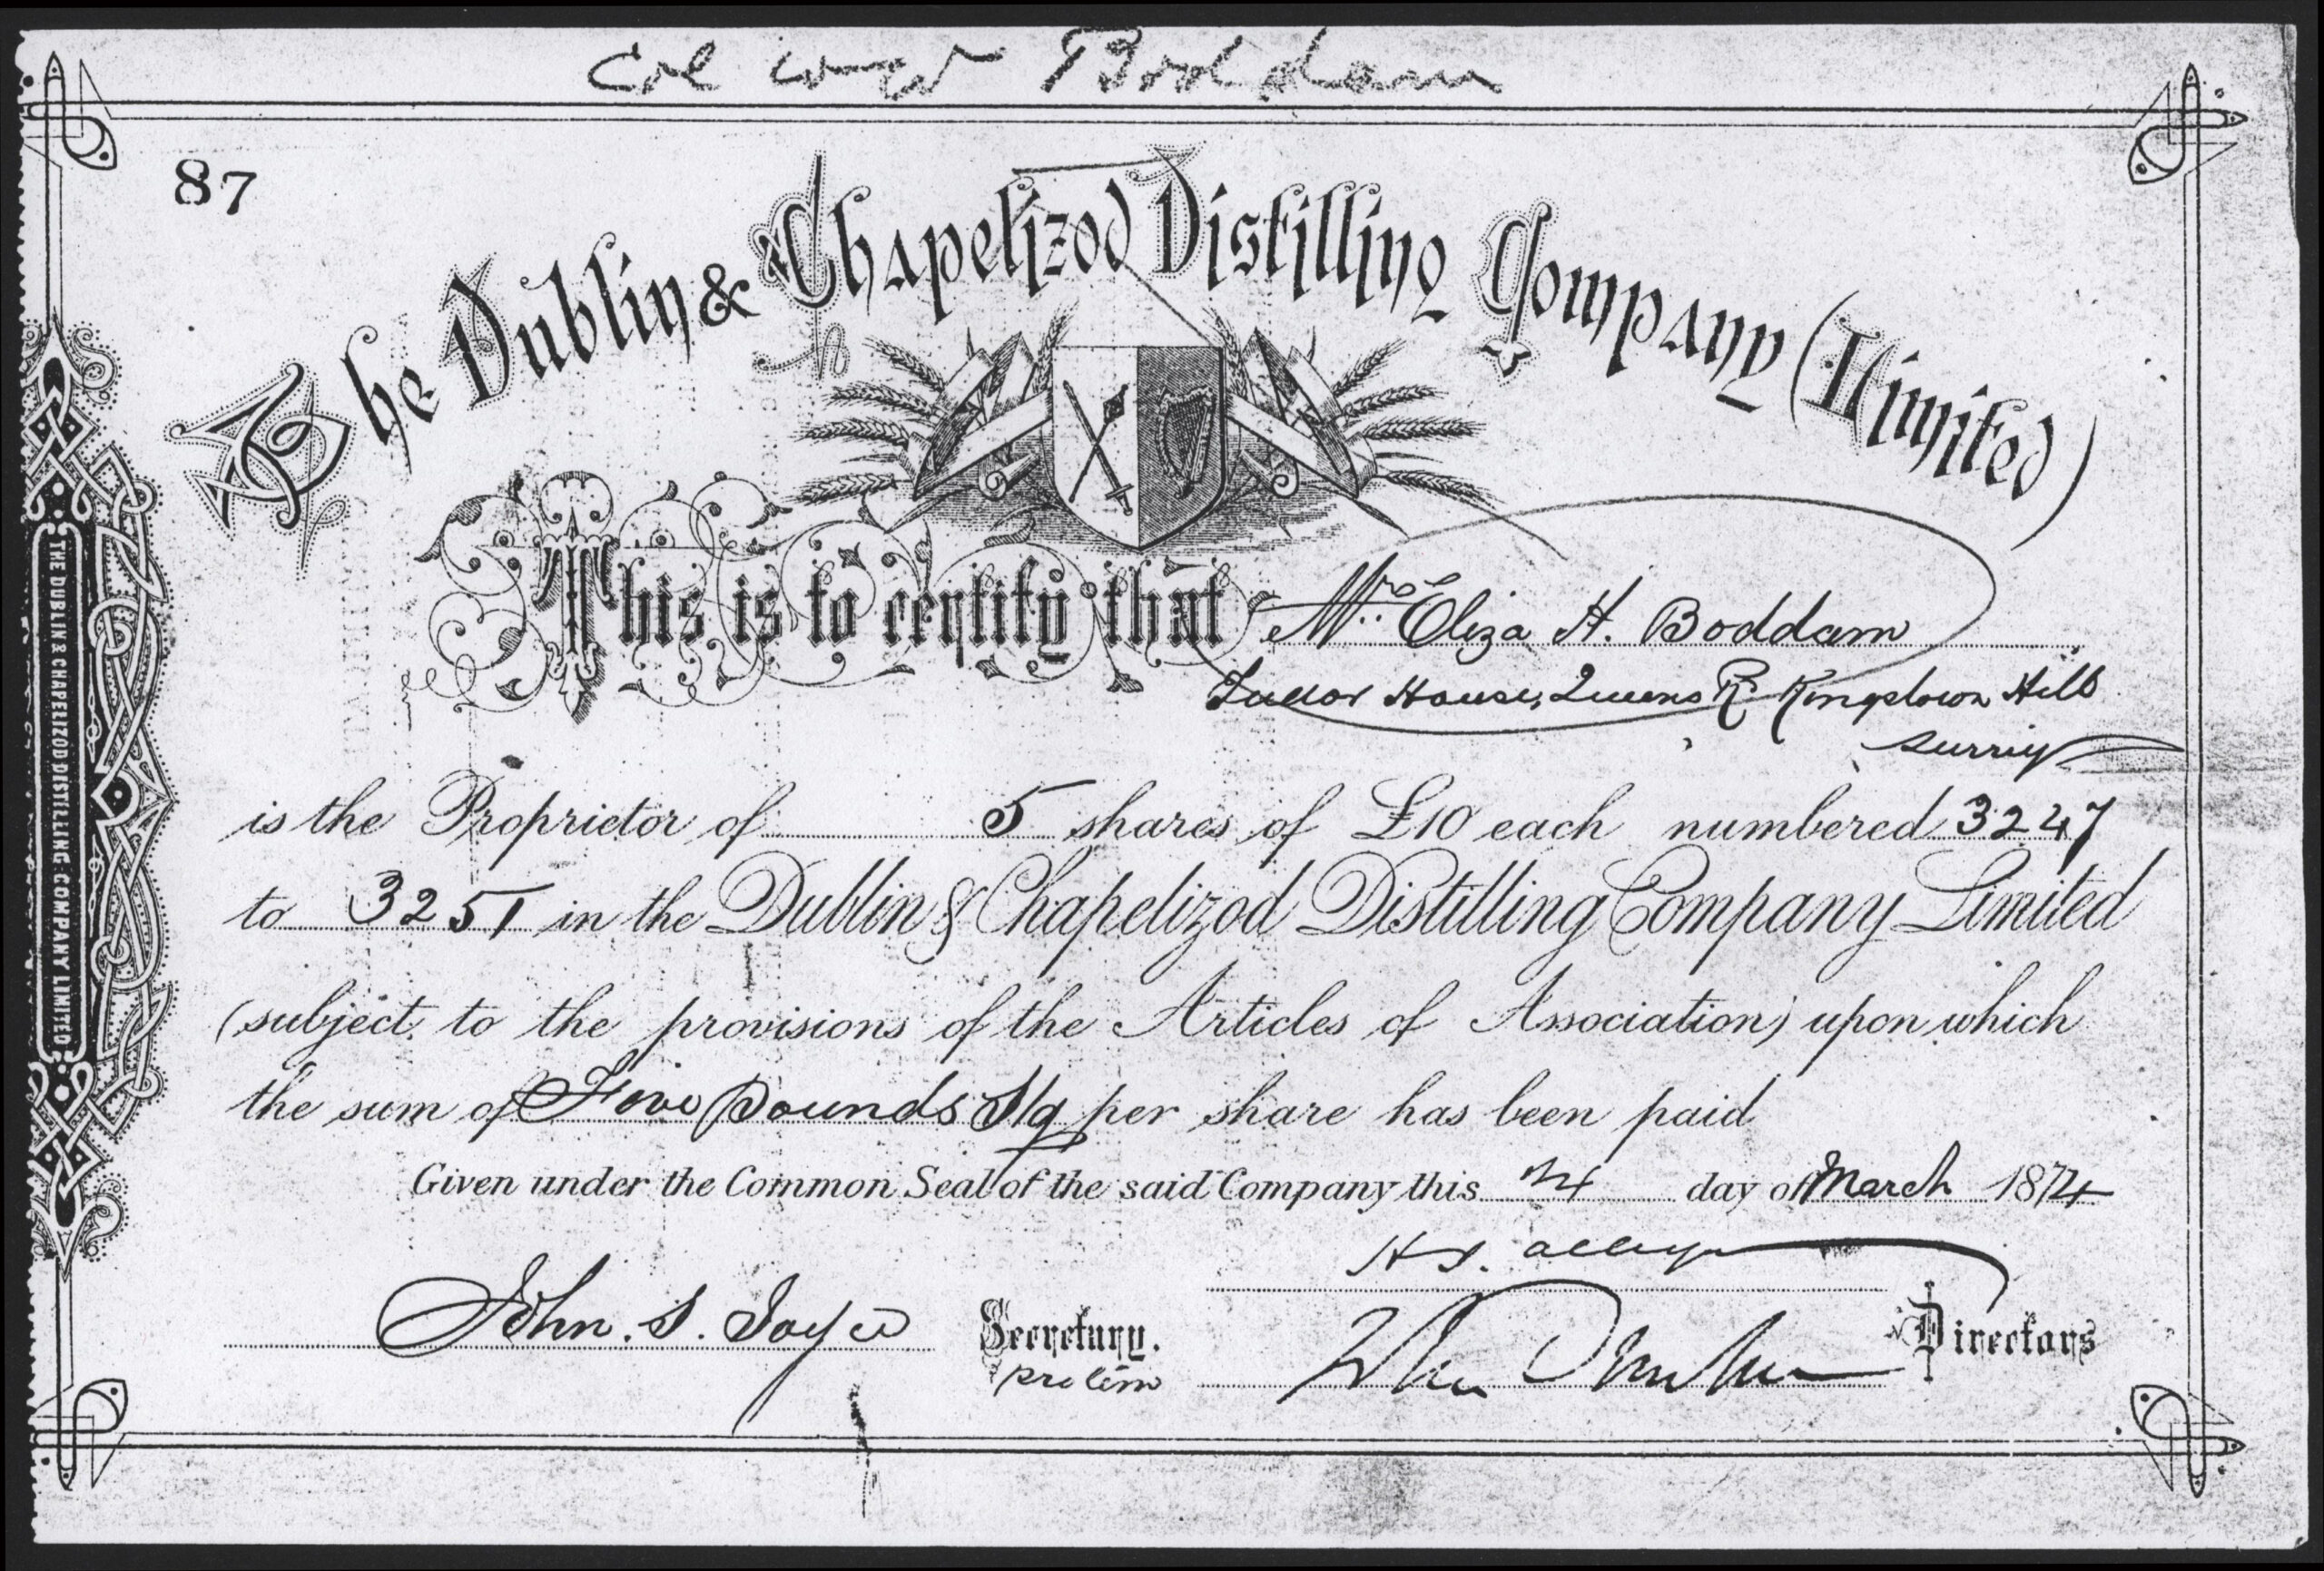 Col W W Boddam
87
The Dublin & Chapelizod Distilling Company (Limited)
This is to certify that Mrs. Eliza H. Boddam
Tudor House, Queens Rd Kingstown Hill
Surrey
is the Proprietor of 5 shares of £10 each numbered 3247
to 3251 in the Dublin & Chapelizod Distilling Company Limited
(subject to the provisions of the Articles of Association) upon which
the sum of Five Pounds Stg per share has been paid
Given under the Common Seal of the said Company this 24 day of March 1874
John. S. Joyce Secretary.
pro tem
Directors
THE DUBLIN & CHAPELIZOD DISTILLING COMPANY LIMITED